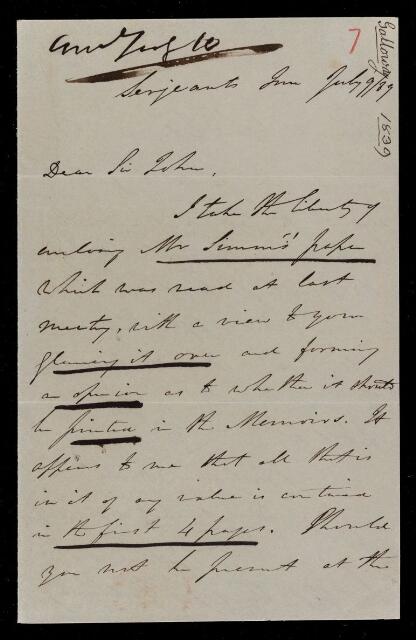 Ansd July 10
7
Galloway 1839
Serjeants Inn July 9/39
Dear Sir John,
I take the liberty of
enclosing Mr Simms's paper
which was read at last
meeting, with a view to your
glancing it over and forming
an opinion as to whether it should
be printed in the Memoirs. It
appears to me that all that is
in it of any value is contained
in the first 4 pages. Should
you not be present at the